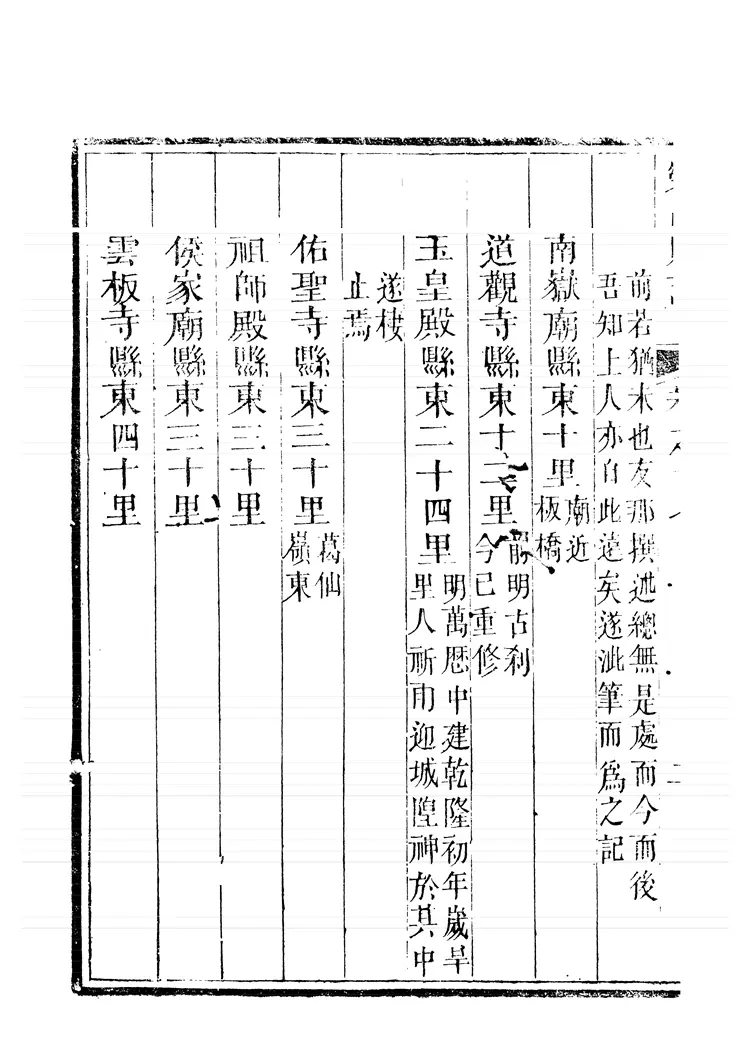 前若猶木也友那撰述總無是處而今而後
吾知上人亦自此遠矣遂泚筆而為之記
南嶽廟縣東十里廟近
板橋
道觀寺縣東十二里前明古刹
今已重修
玉皇殿縣東二十四里明萬厯中建乾隆初年歲旱
里人祈雨迎城隍神於其中
遂棲
止焉
佑聖寺縣東三十里葛仙
嶺東
祖師殿縣東三十里
侯家廟縣東三十里
雲板寺縣東四十里